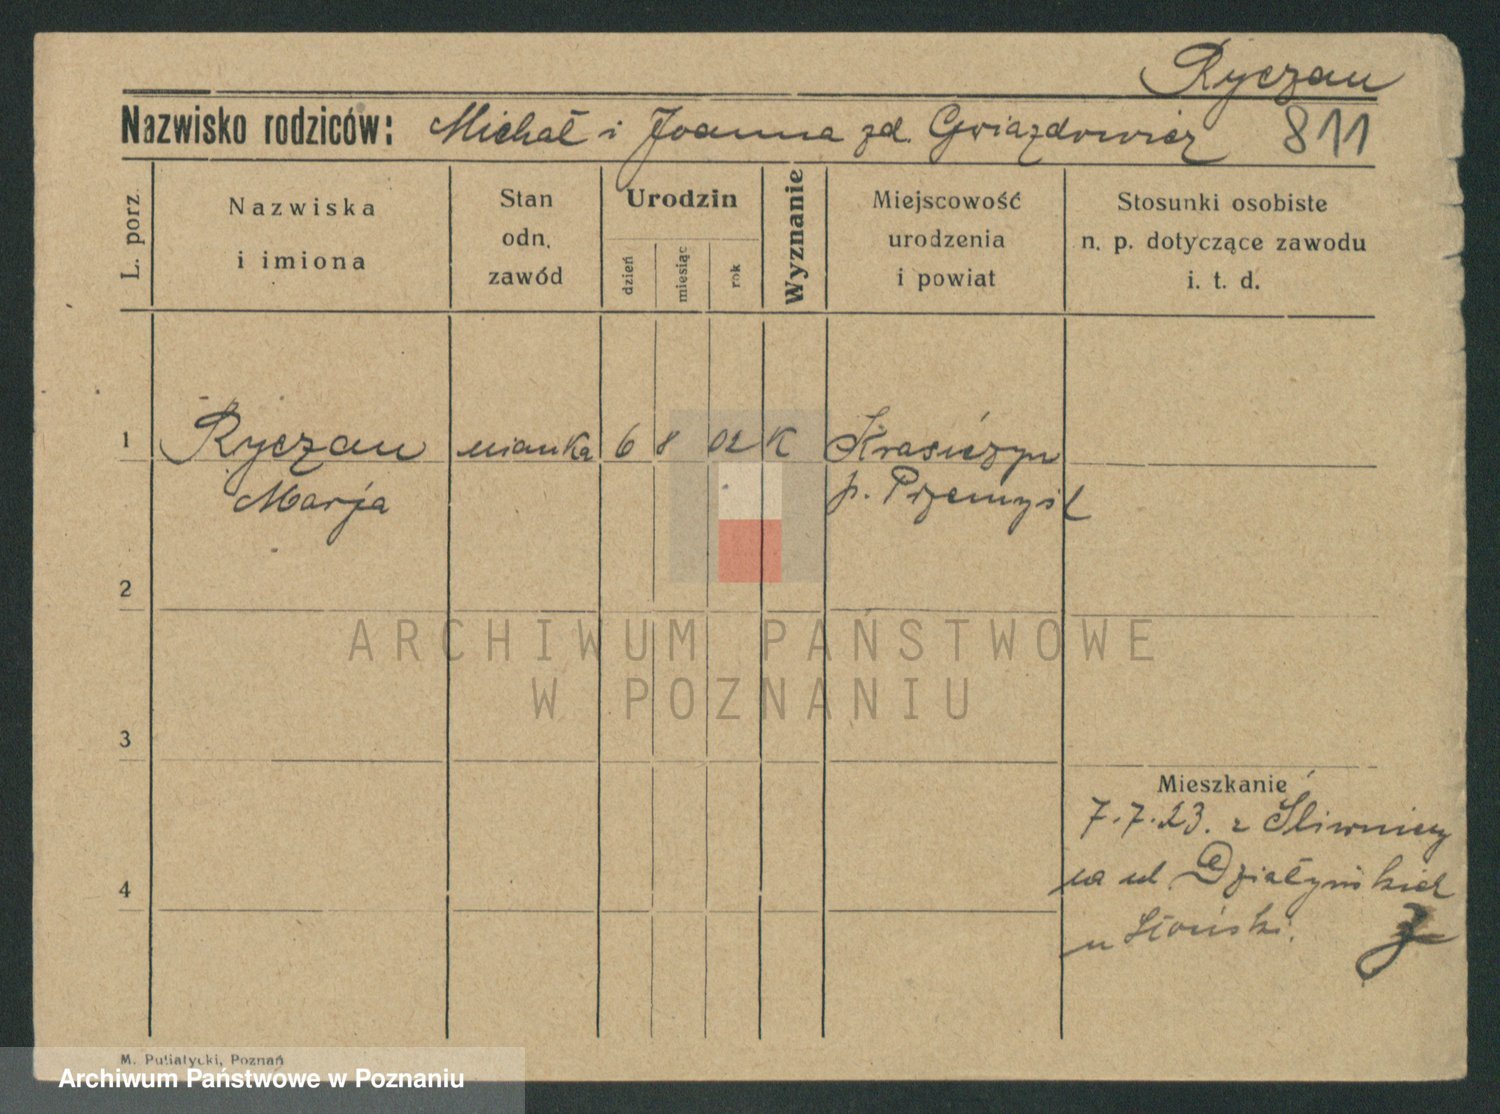 Ryczan
Nazwisko rodziców: Michał i Joanna zd. Gwiazdowicz 811
L. porz.
Nazwiska
i imiona
Stan
odn.
zawód
Urodzin
dzień
miesiąc
rok
Wyznanie
Miejscowość
urodzenia
i powiat
Stosunki osobiste
n. p. dotyczące zawodu
i. t. d.
1 Ryczan nianka 6 8 02 K Krasiczyn
Marja p. Przemyśl
2
ARCHIWUM PAŃSTWOWE
W POZNANIU
3
Mieszkanie
7.7.23. z Śliwnicy
na ul. Działyńskich
4
u
M. Putiatycki, Poznań
Archiwum Państwowe w Poznaniu